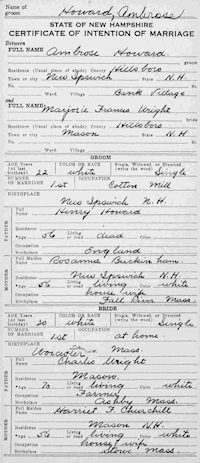 Name of groom Howard, Ambrose
STATE OF NEW HAMPSHIRE
CERTIFICATE OF INTENTION OF MARRIAGE
Between
FULL NAME Ambrose Howard
Residence (Usual place of abode) County Hillsboro
Town or City New Ipswich State N.H.
Ward. Village Bank Village
and
FULL NAME Marjorie Frances Wright
Residence (Usual place of abode) County Hillsboro
Town or City Mason State N.H.
Ward. Village
GROOM
AGE Years (At last birthday) 22 COLOR OR RACE white Single, Widowed, or Divorced (write the word) Single
NUMBER OF MARRIAGE 1st OCCUPATION Cotton Mill
Birthplace New Ipswich N.H.
FATHER
Full Name Henry Howard
Residence
Age 56 Living or dead dead Color
Occupation
Birthplace England
MOTHER
Full Maiden Name Rosanna Buckin ham
Residence New Ipswich N.H.
Age 56 Living or dead living Color white
Occupation house wife
Birthplace Fall River Mass.
BRIDE
AGE Years (At last birthday) 20 COLOR OR RACE white Single, Widowed, or Divorced (write the word) Single
NUMBER OF MARRIAGE 1st OCCUPATION at home
Birthplace Worcester Mass.
FATHER
Full Name Charles Wright
Residence Mason
Age 70 Living or dead living Color white
Occupation Farmer
Birthplace Ashby Mass.
MOTHER
Full Maiden Name Harriet F. Churchill
Residence Mason N.H.
Age 56 Living or dead living Color white
Occupation house wife
Birthplace Stowe Mass.